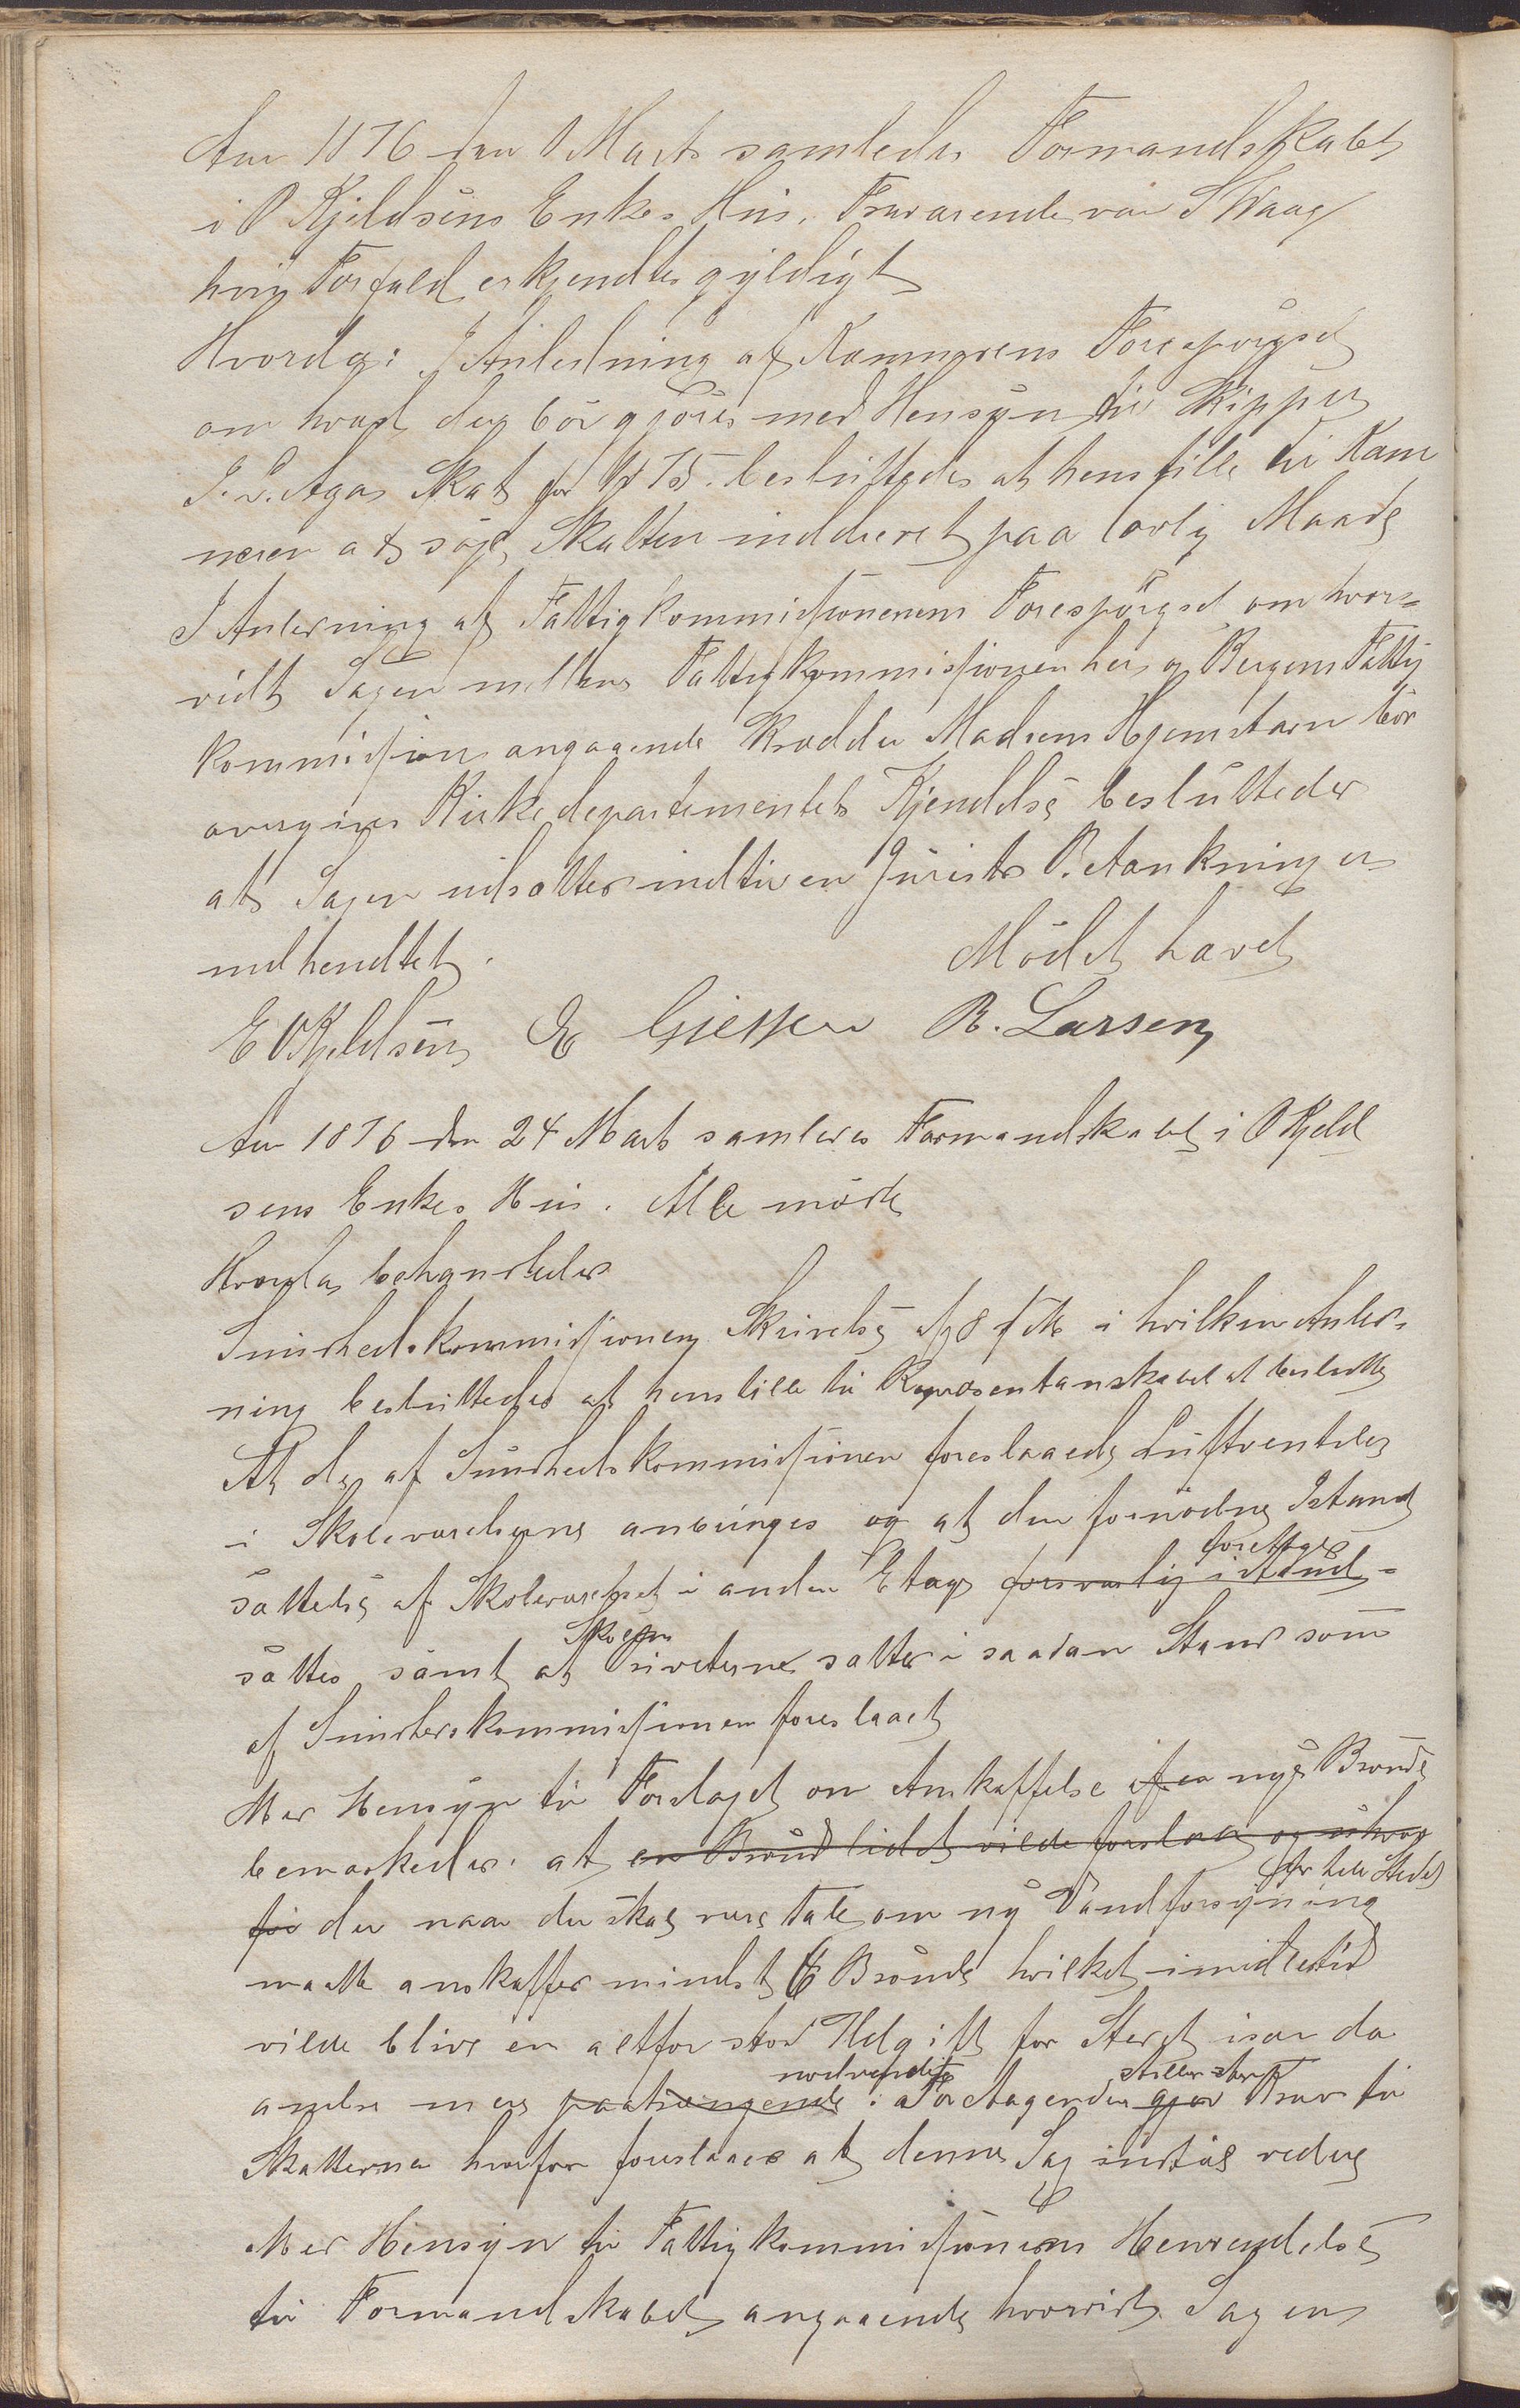 Aar 1876 den Marts samledes Formandskabet
i O Kjeldsens Enkes Hus. Fraværende var S Waag
hvis Forfald erkjendtes gyldigt
Hvorda: I Anledning af Kæmnerens Forespørgsel
om hvad der bør gjøres med Hensyn til Skipper
J. L. Agas Skat for 1875 besluttedes at henstille til Kæm
neren at søge Skatten inddrevet paa lovlig Maade
I Anledning af Fattigkommissionenens Forespørgsel om hvor-
vidt Sagen mellem Fattigkommissionen her og Bergens Fattig
kommission angaaende Skrædder Madsens Hjemstavn bør
overgives Kirkedepartementets Kjendelse besluttedes
at Sagen udsættes indtil en Jurists Betænkning er
indhendtet. Mødet hævet
E OKjeldsen E Gjessen R. Larsen
Aar 1876 den 24 Marts samledes Formandskabet i O Kjeld
sens Enkes Hus. Alle mødte
Hvorda behandledes
Sundhedskommissionens Skrivelse af 8 ds i hvilken Anled-
ning besluttedes at henstille til Repræsentantskabet at beslutte
At de af Sundhedskommissionen foreslaaede Luftventiler
i Skoleværelserne anbringes og at den fornødne Istand
foretages
sættelse af Skoleværelset i anden Etage forsvarlig istand-
Skolens
sættes samt at Priveterne sættes i saadan Stand som
af Sundhedskommissionen foreslaaet
Med Hensyn til Forslaget om Anskaffelse af en nye Brønde
bemærkedes: at en Brønd lidet vilde forslaa og
for hele Stedet
til der naar der skal være Tale om ny Vandforsyning
maatte anskaffes mindst 6 Brønde hvilket imidlertid
vilde blive en altfor stor Udgift for Stedet især da
nødvendige stiller store
andre mere paatrængende Foretagender gjør Krav til
Skatterne hvorfor foreslaaes at denne Sag indtil videre
Med Hensyn til Fattigkommissionens Henvendelse
til Formandskabet angaaende hvorvidt Sagen